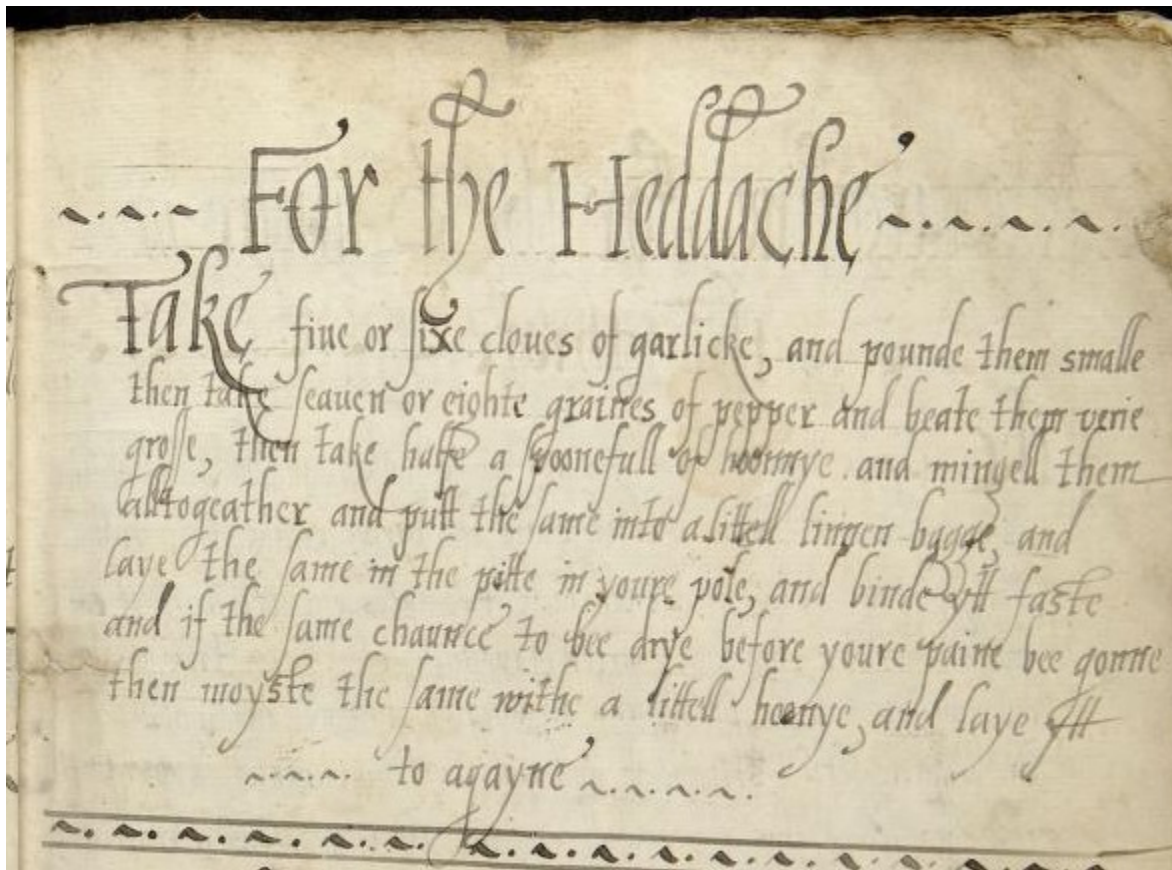 For the Heddache
Take fiue or sixe cloues of garlicke, and pounde them smalle
then take seauen or eighte graines of pepper and beate them verie
grosse, then take halfe a spoonefull of hoonnye and mingell them
alltogeather and putt the same into a littell linnen bagge, and
laye the same in the pitte in youre pole, and binde ytt faste
and if the same chaunce to bee drye before youre paine bee gonne
then moyste the same withe a littell hoonye, and laye ytt
to agayne